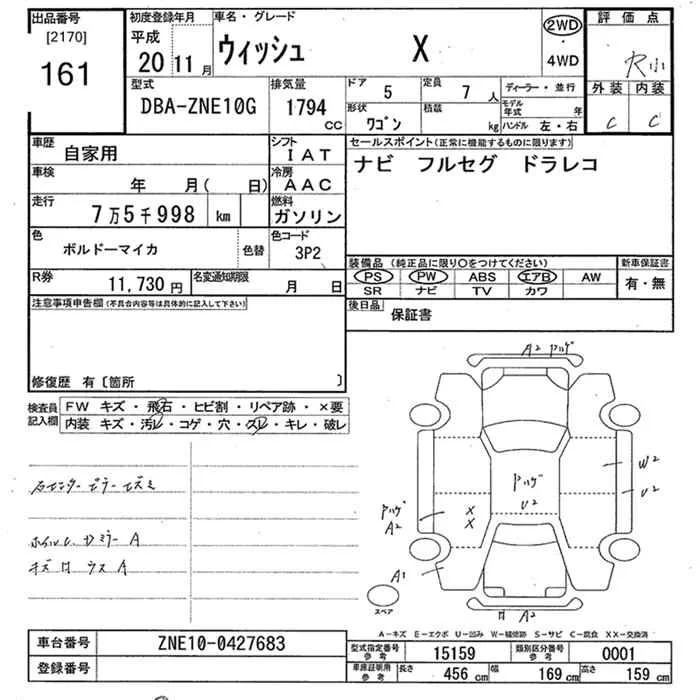 出品番号
[2170]
161
初度登録年月
平成
20 11月
車名・グレード
ウィッシュ X
2WD
・
4WD
評価点
外装 内装
C C
型式
DBA-ZNE10G
排気量
1794
CC
ドア
5
定員
7 人
形状
ワゴン
積載
kg
ディーラー・並行
モデル年式 年
ハンドル 左・右
車歴
自家用
シフト
IAT
車検
年 月( 日)
冷房
AAC
走行
7万5千998 km
燃料
ガソリン
色
ボルドーマイカ
色替
色コード
3P2
R券
11,730円
名変通知期限
月 日
セールスポイント(正常に機能するものに限ります)
ナビ フルセグ ドラレコ
装備品 (純正品に限り○をつけてください)
PS PW ABS エアB AW
SR ナビ TV カワ
新車保証書
有・無
後日品
保証書
注意事項申告欄(不具合内容等は具体的に記入して下さい)
修復歴 有〔箇所 〕
検査員
記入欄
FW キズ・飛石・ヒビ割・リペア跡・×要
内装 キズ・汚レ・コゲ・穴・スレ・キレ・破レ
A2 ハゲ
ハゲ
U2
W2
U2
ハゲ
A2
X
X
A1
A2
スペア
A-キズ E-エクボ U-凹み W-補修跡 S-サビ C-腐食 XX-交換済
車台番号
ZNE10-0427683
登録番号
型式指定番号
参考
15159
類別区分番号
参考
0001
車庫証明用
参考
長さ 456 cm 幅 169 cm 高さ 159 cm